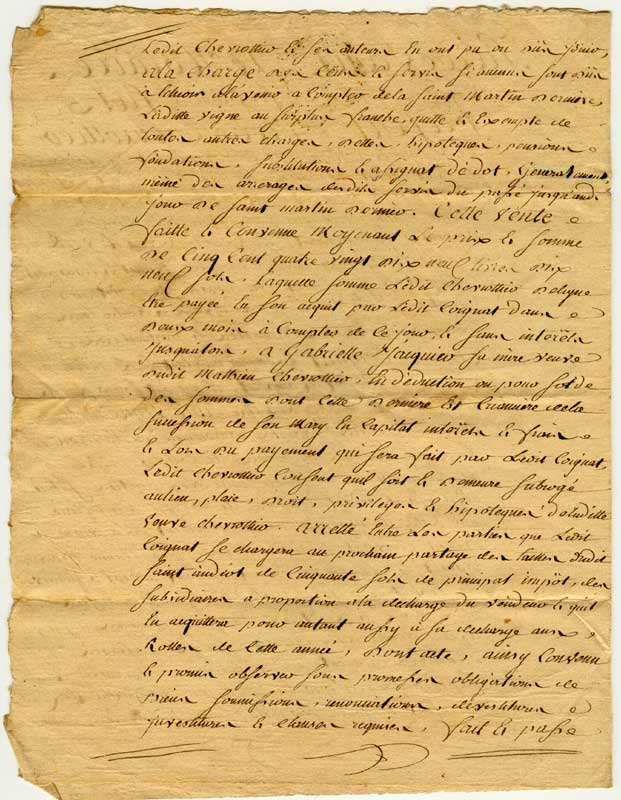 Ledit Chevrottier & ses auteurs en ont pu ou dûs jouir,
a la charge des Cens & servis si aucuns sont dûs
à échoir à l'avenir a compter de la saint Martin derniere,
Laditte vigne au surplus franche, quitte & Exempte de
toutes autres charges, dettes, hipoteques, pensions
fondations, substitutions & assignat de dot, Generalement
même des arrerages desdits servis du passé jusqu'audit
jour de saint martin dernier. Cette Vente
faitte & Convenue Moyenant Le prix & somme
de Cinq Cent quatre vingt dix neuf livres dix
neuf sols, Laquelle somme Ledit Chevrottier delegue
être payée en son acquit par Ledit Coignat dans
deux mois à Compter de Ce jour, & sans interêts
jusqu'alors, a Gabrielle Jacquier sa mere veuve
dudit Mathieu Chevrottier, En déduction ou pour solde
des sommes dont Cette derniere Est Créanciere de la
succession de son Mary En Capital interêts & frais
& Lors du payement qui sera fait par Ledit Coignat,
Ledit Chevrottier Consent quil soit & demeure subrogé
au lieu, place, droit, privileges & hipoteques de laditte
veuve Chevrottier. Arretté Entre Les parties que Ledit
Coignat se chargera au prochain partage des tailles dudit
saint andiol de Cinquante sols de principal impôt, des
subsidiaires a proportion a la decharge du vendeur & quil
En acquittera pour autant aussy à sa decharge aux
Rolles de Cette année, dont acte, ainsy Convenu
& promis observer sous promesses obligations de
biens soumissions, renonciations, devestitures
investitures & clauses requises, fait & passé